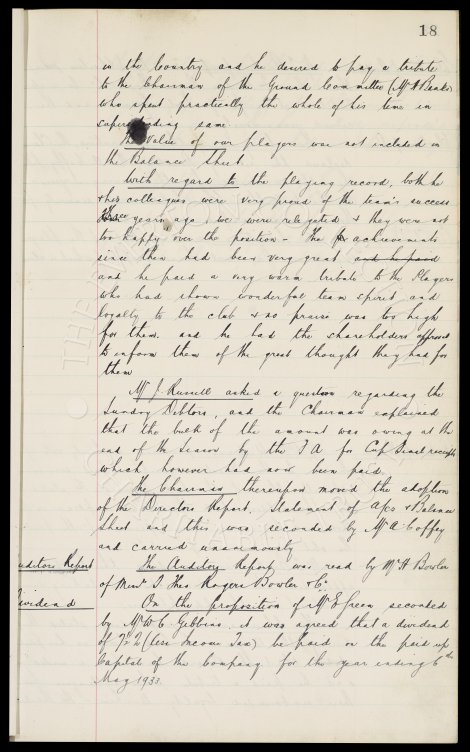 18
in the Country and he desired to pay a tribute
to the Chairman of the Ground Committee (Mr A Banks)
who spent practically the whole of his time in
superintending same.
The Value of our players was not included in
the Balance Sheet
With regard to the playing record, both he
& his colleagues were very proud of the team's success
Three years ago, we were relegated & they were not
too happy over the position - The achievements
since then had been very great and he paid
and he paid a very warm tribute to the Players
who had shown wonderful team spirit and
loyalty to the club & no praise was too high
for them. and he had the shareholders approval
to inform them of the great thought they had for
them
Mr J. Russell asked a question regarding the
Sundry Debtors, and the Chairman explained
that the bulk of the amount was owing at the
end of the Season by the F A for Cup Final receipts
which however had now been paid.
The Chairman thereupon moved the adoption
of the Directors Report, Statement of A/cs & Balance
Sheet and this was seconded by Mr A Coffey
and carried unanimously
uditors Report
The Auditors Report was read by Mr H Bowler
of Messrs J. Theo Rogers Bowler & Co.
ividend
On the proposition of Mr E Green seconded
by Mr W. C. Gibbins, it was agreed that a dividend
of 7½ % (less Income Tax) be paid on the paid up
Capital of the Company for the year ending 6th
May 1933.